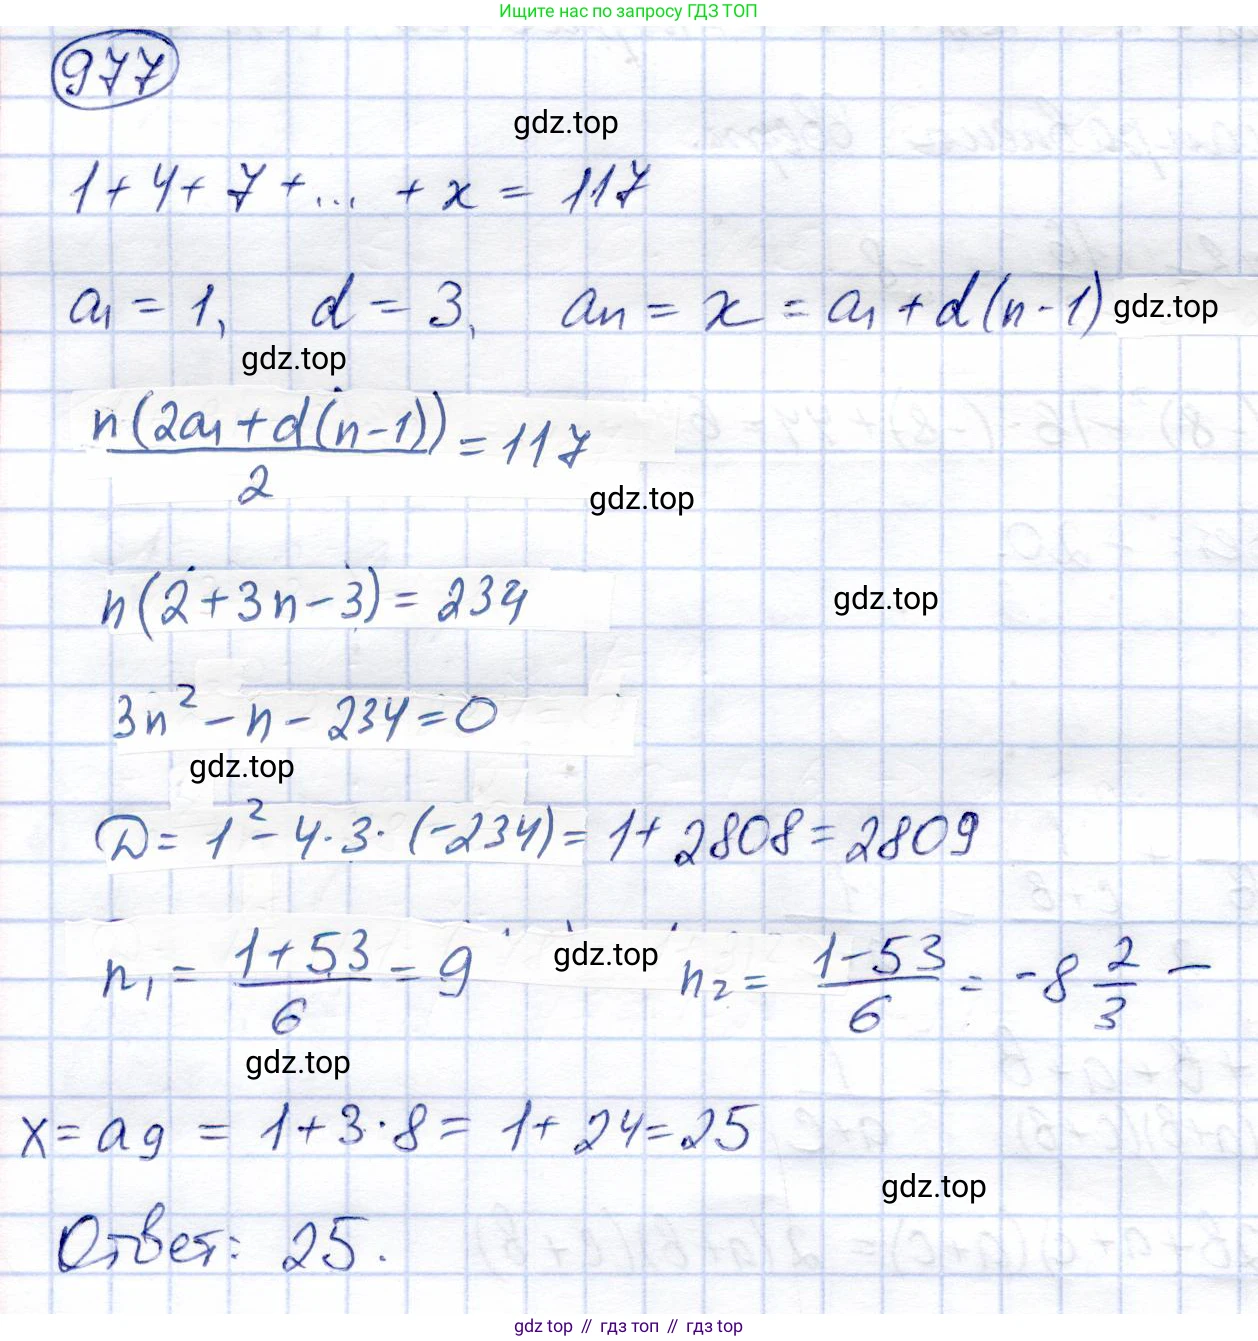 Ищите нас по запросу ГДЗ ТОП
977
gdz.top
1 + 4 + 7 + ... + x = 117
a₁ = 1, d = 3, aₙ = x = a₁ + d(n - 1) gdz.top
gdz.top
n(2a₁ + d(n - 1))/2 = 117
gdz.top
n(2 + 3n - 3) = 234
gdz.top
3n² - n - 234 = 0
gdz.top
D = 1² - 4 · 3 · (-234) = 1 + 2808 = 2809
n₁ = (1 + 53)/6 = 9 gdz.top n₂ = (1 - 53)/6 = -8 2/3 —
gdz.top
x = a₉ = 1 + 3 · 8 = 1 + 24 = 25
gdz.top
Ответ: 25.
gdz top // гдз топ // гдз top